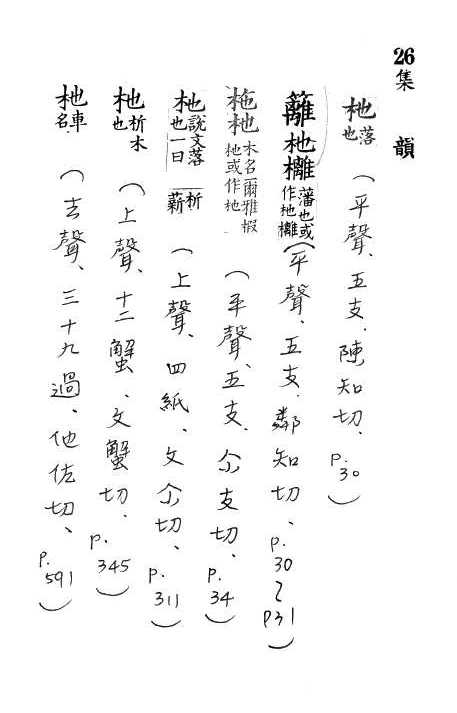 26集韻
杝落也(平聲、五支、陳知切、p.30)
籬杝欐藩也或作杝欐(平聲、五支、鄰知切、p.30~p31)
杝木名爾雅椵杝或作(平聲、五支、支切、p.34)
杝說文落也一曰析薪(上聲、四紙、切、p.311)
杝析木也(上聲、十二蟹、文蟹切、p.345)
杝車名(去聲、三十九過、他佐切、p.591)